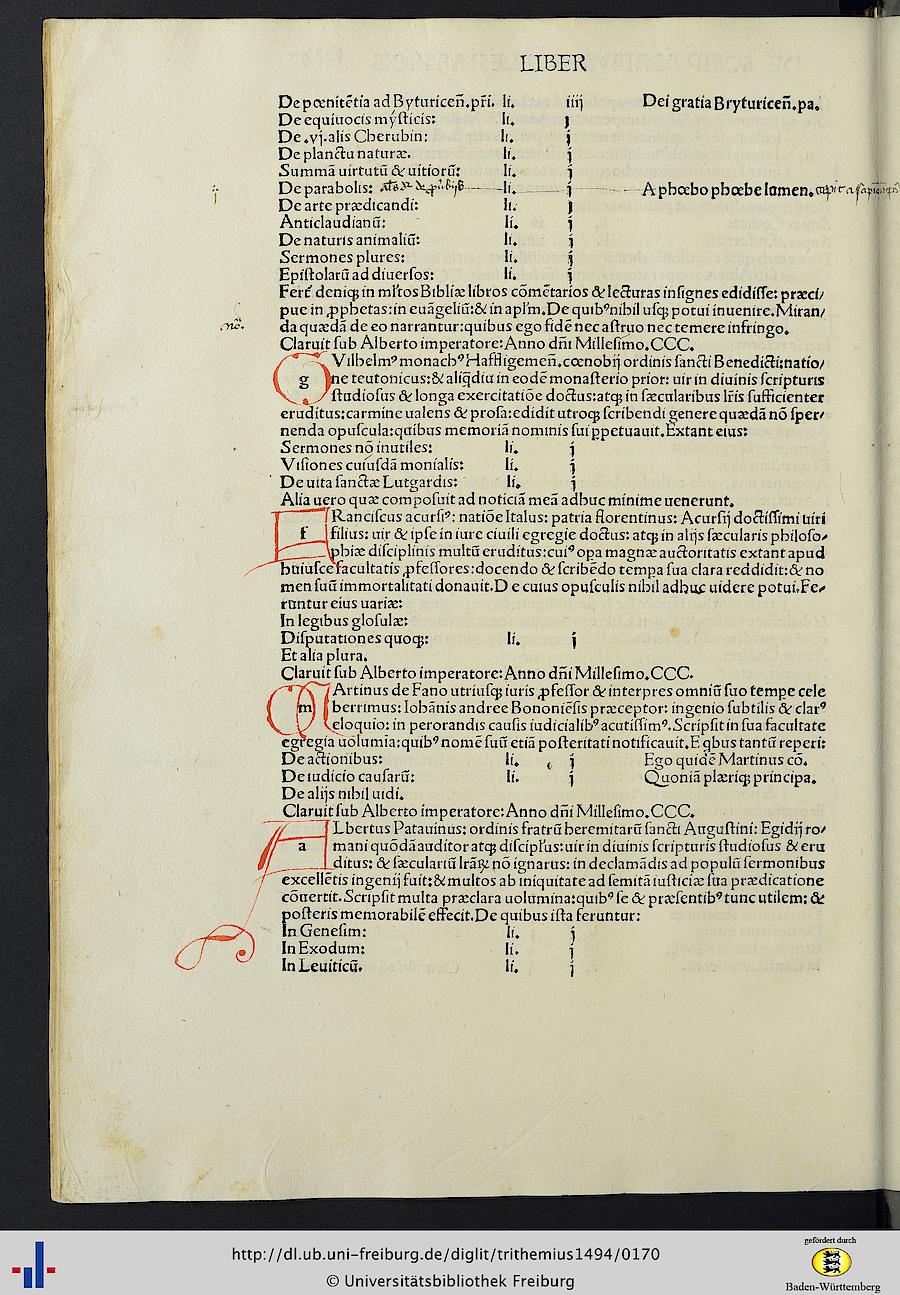 LIBER
De pœnitētia ad Byturiceñ. p̄ri. li. iiij Dei gratia Bryturiceñ. pa.
De equiuocis mẏsticis: li. j
De .vj. alis Cherubin: li. j
De planctu naturæ. li. j
Summā uirtutū & uitiorū: li. j
De parabolis: li. j A phœbo phœbe lumen.
De arte prædicandi: li. j
Anticlaudianū: li. j
De naturis animaliū: li. j
Sermones plures: li. j
Epistolarū ad diuersos: li. j
Fert̄ deniqꝫ in ml̄tos Bibliæ libros cōmētarios & lecturas insignes edidisse: præci/
pue in ꝓphetas: in euāgeliū: & in apl̄m. De quibꝰ nihil usqꝫ potui inuenire. Miran/
da quædā de eo narrantur: quibus ego fidē nec astruo nec temere infringo.
Claruit sub Alberto imperatore: Anno dn̄i Millesimo. CCC.
g Vilhelmꝰ monachꝰ Haffligemeñ. cœnobij ordinis sancti Benedicti: natio/
ne teutonicus: & aliq̄diu in eodē monasterio prior: uir in diuinis scripturis
studiosus & longa exercitatiōe doctus: atqꝫ in sæcularibus lr̄is sufficienter
eruditus: carmine ualens & prosa: edidit utroqꝫ scribendi genere quædā nō sper/
nenda opuscula: quibus memoriā nominis sui ꝑpetuauit. Extant eius:
Sermones nō inutiles: li. j
Visiones cuiusdā monialis: li. j
De uita sanctæ Lutgardis: li. j
Alia uero quæ composuit ad noticiā meā adhuc minime uenerunt.
f Ranciscus acursiꝰ: natiōe Italus: patria florentinus: Acursij doctissimi uiri
filius: uir & ipse in iure ciuili egregie doctus: atqꝫ in alijs sæcularis philoso/
phiæ disciplinis multū eruditus: cuiꝰ opa magnæ auctoritatis extant apud
huiusce facultatis ꝓfessores: docendo & scribēdo tempa sua clara reddidit: & no
men suū immortalitati donauit. De cuius opusculis nihil adhuc uidere potui. Fe/
runtur eius uariæ:
In legibus glosulæ:
Disputationes quoqꝫ: li. j
Et alia plura.
Claruit sub Alberto imperatore: Anno dn̄i Millesimo. CCC.
m Artinus de Fano utriusqꝫ iuris ꝓfessor & interpres omniū suo tempe cele
berrimus: Iohānis andree Bononiēsis præceptor: ingenio subtilis & clarꝰ
eloquio: in perorandis causis iudicialibꝰ acutissimꝰ. Scripsit in sua facultate
egregia uolumīa: quibꝰ nomē suū etiā posteritati notificauit. E qbus tantū reperi:
De actionibus: li. j Ego quidē Martinus cō.
De iudicio causarū: li. j Quoniā plæriqꝫ principa.
De alijs nihil uidi.
Claruit sub Alberto imperatore: Anno dn̄i Millesimo. CCC.
a Lbertus Patauinus: ordinis fratrū heremitarū sancti Augustini: Egidij ro/
mani quōdā auditor atqꝫ discipl̄us: uir in diuinis scripturis studiosus & eru
ditus: & sæculariū lr̄aꝝ nō ignarus: in declamādis ad populū sermonibus
excellētis ingenij fuit: & multos ab iniquitate ad semitā iusticiæ sua prædicatione
cōuertit. Scripsit multa præclara uolumina: quibꝰ se & præsentibꝰ tunc utilem: &
posteris memorabilē effecit. De quibus ista feruntur:
In Genesim: li. j
In Exodum: li. j
In Leuiticū. li. j
http://dl.ub.uni-freiburg.de/diglit/trithemius1494/0170
© Universitätsbibliothek Freiburg
gefördert durch
Baden-Württemberg